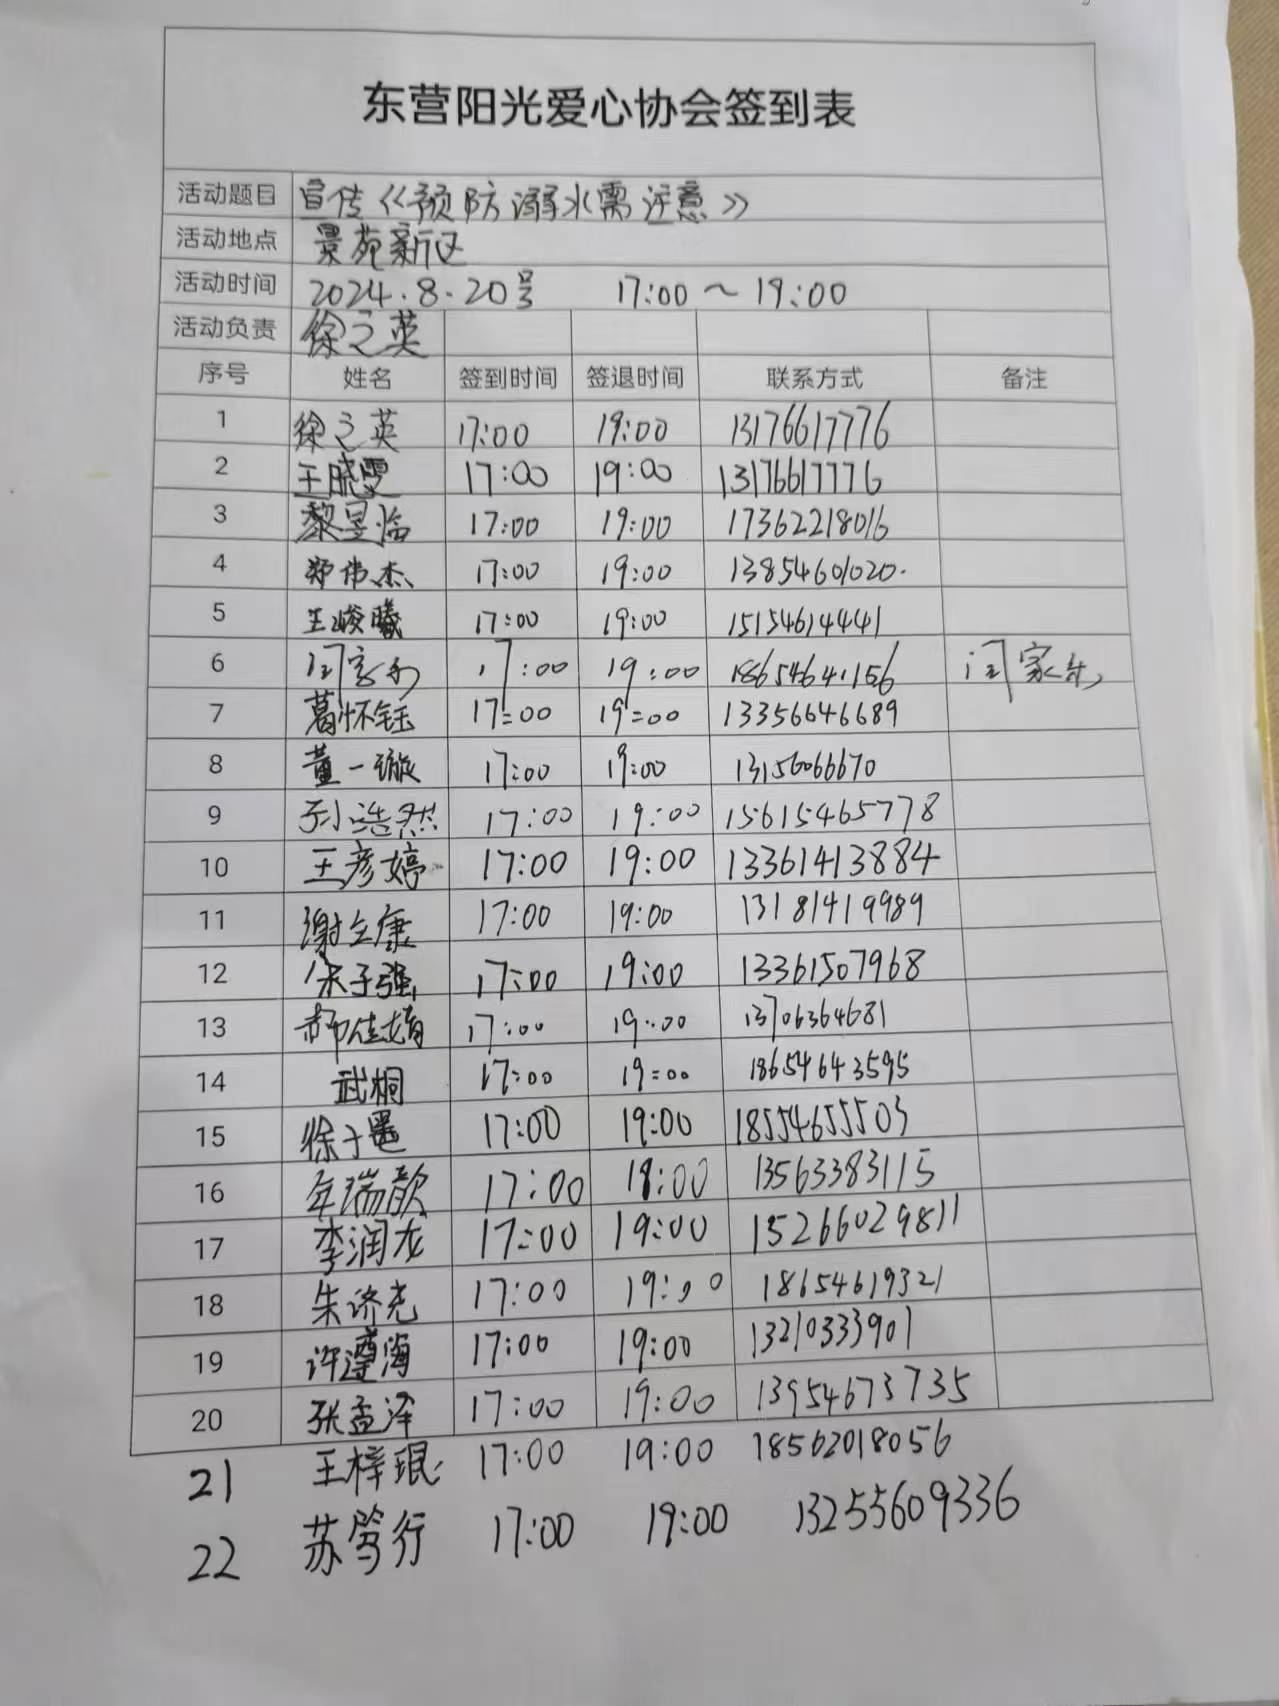 东营阳光爱心协会签到表
活动题目 宣传《预防溺水需注意》
活动地点 景苑新区
活动时间 2024.8.20号 17:00～19:00
活动负责 徐之英
序号 姓名 签到时间 签退时间 联系方式 备注
1 徐之英 17:00 19:00 13176617776
2 王晓雯 17:00 19:00 13176617776
3 黎昱临 17:00 19:00 17362218016
4 郑伟杰 17:00 19:00 13854601020.
5 王峻曦 17:00 19:00 15154614441
6 闫家 17:00 19:00 18654641156 闫家
7 葛怀钰 17:00 19:00 13356646689
8 董一璇 17:00 19:00 13156066670
9 孙浩然 17:00 19:00 15615465778
10 王彦婷 17:00 19:00 13361413884
11 谢立康 17:00 19:00 13181419989
12 朱子强 17:00 19:00 13361507968
13 郝佳婧 17:00 19:00 13706364681
14 武桐 17:00 19:00 18654643595
15 徐子 17:00 19:00 18554655503
16 年瑞歆 17:00 18:00 13563383115
17 李润龙 17:00 19:00 15266029811
18 朱济尧 17:00 19:00 18654619321
19 许遵海 17:00 19:00 13210333901
20 张孟泽 17:00 19:00 13954673735
21 王梓琨 17:00 19:00 18562018056
22 苏笃行 17:00 19:00 13255609336